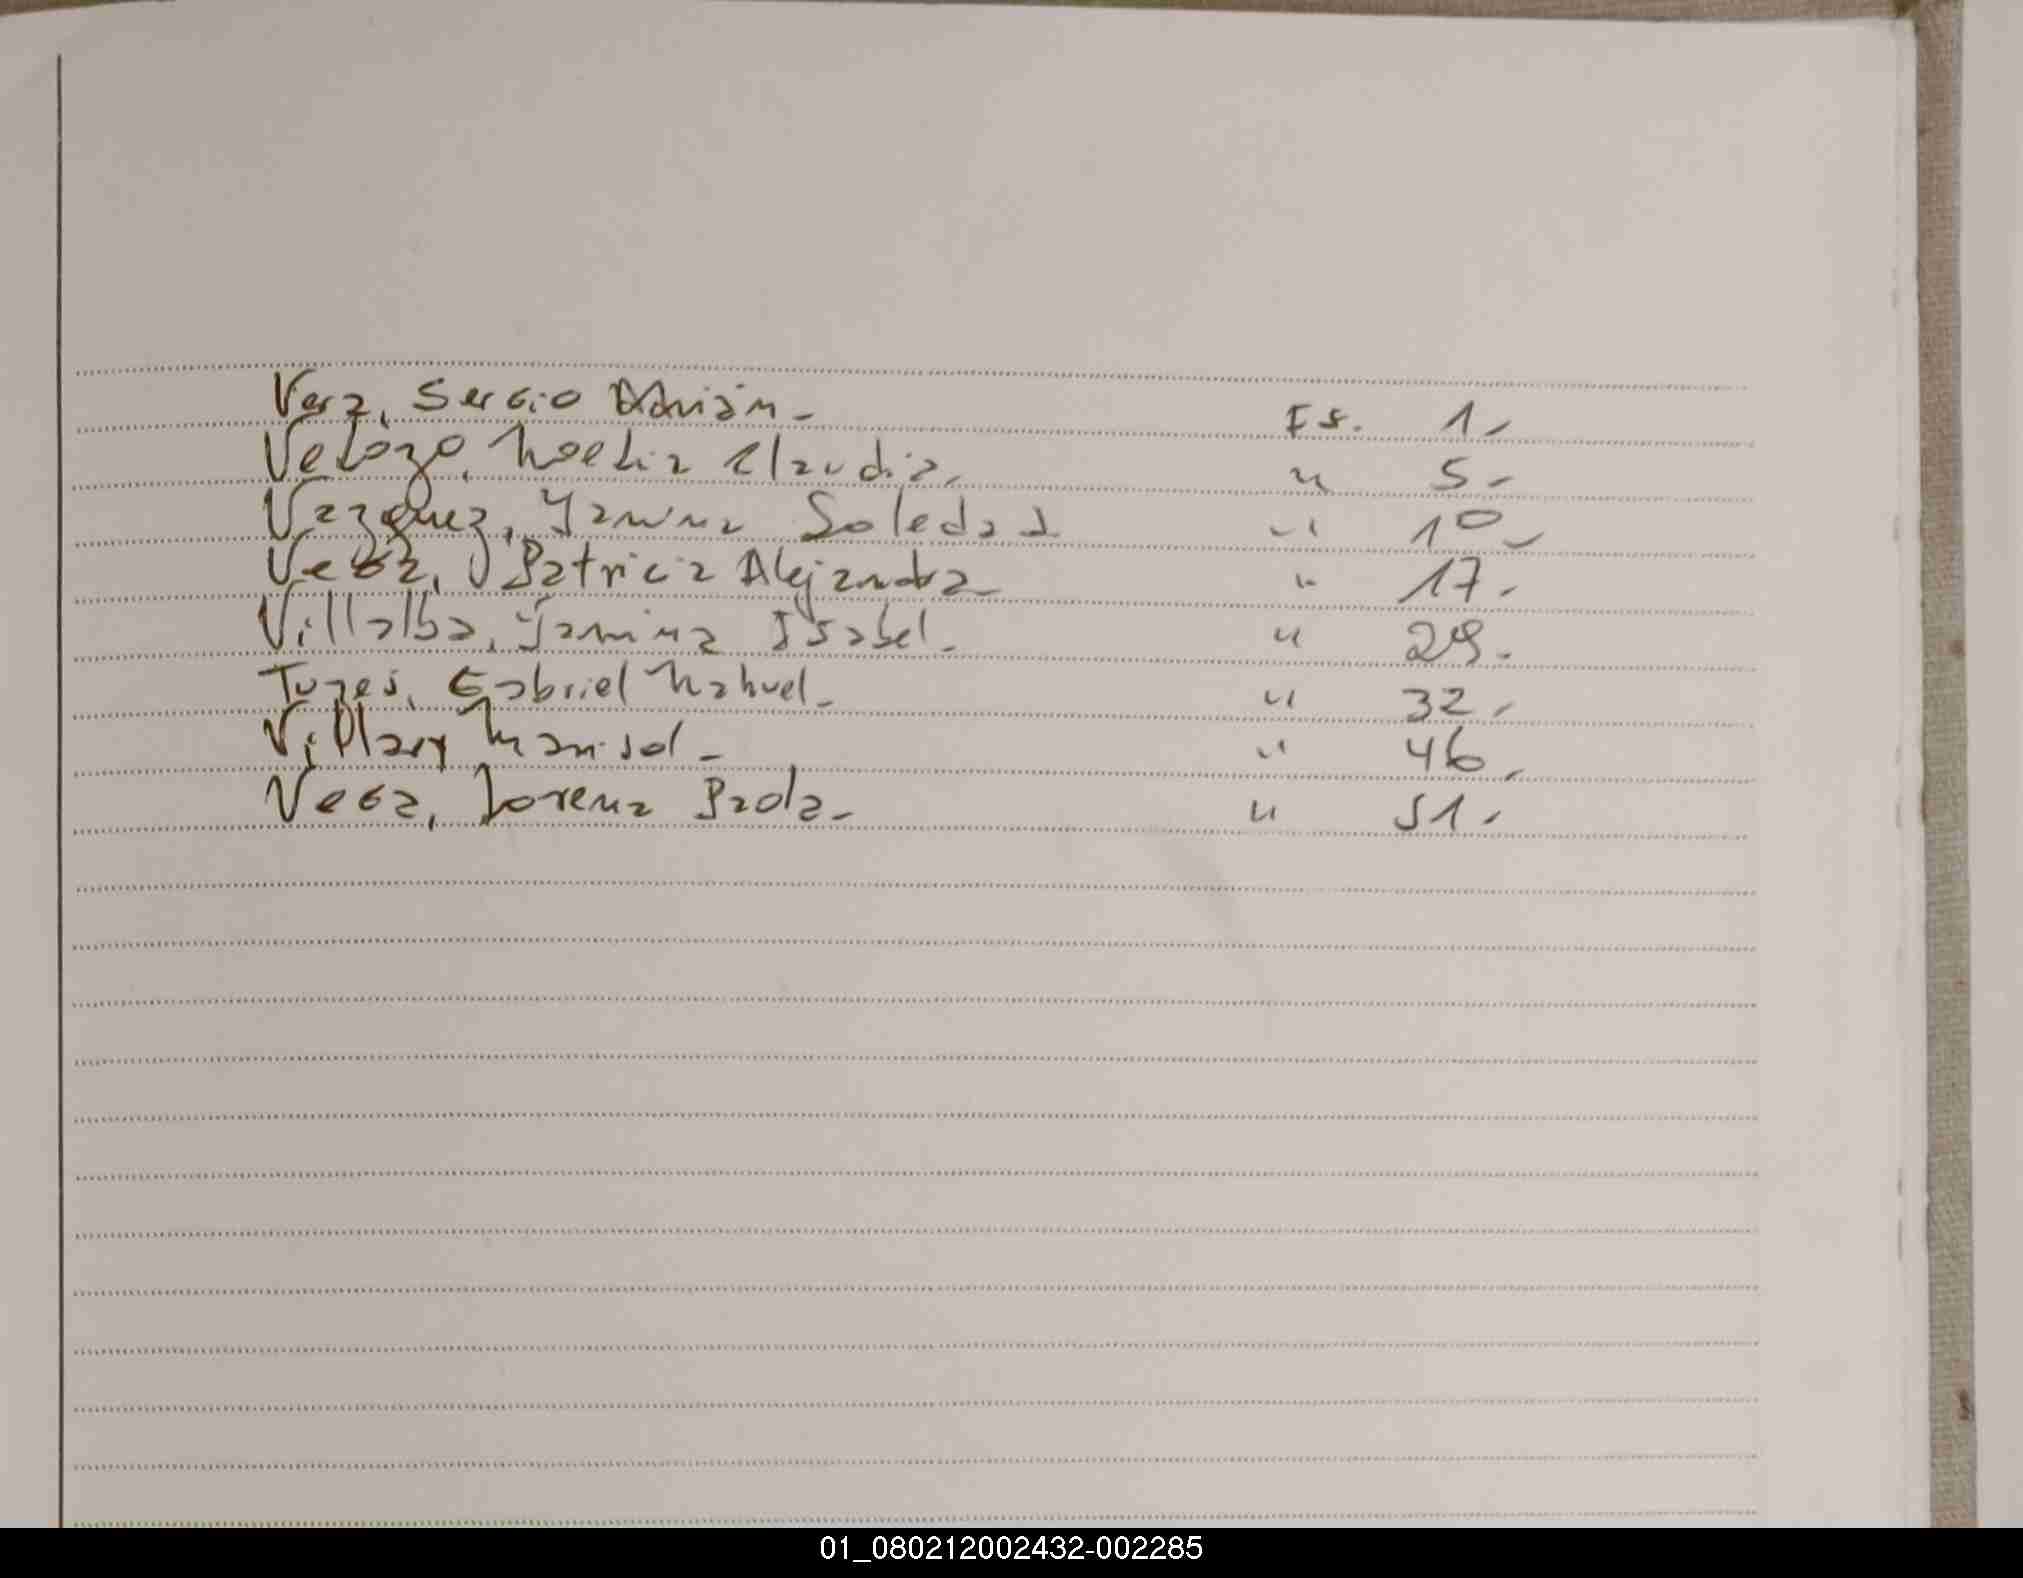 Vera, Sergio Adrián. Fs. 1.
Velozo, Noelia Claudia. " 5.
Vazquez, Yanina Soledad " 10.
Vega, Patricia Alejandra " 17.
Villalba, Yamina Isabel. " 29.
Gabriel Nahuel. " 32.
Marisol. " 46.
Vega, Lorena Paola. " 51.
01_080212002432-002285